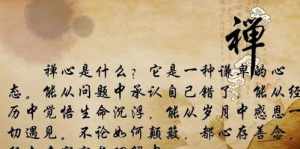 禅
禅心是什么?它是一种谦卑的心
态。能从问题中承认自己错了,能从经
历中觉悟生命沉浮,能从岁月中感恩一
切遇见。不论如何颠簸,都心存善念。